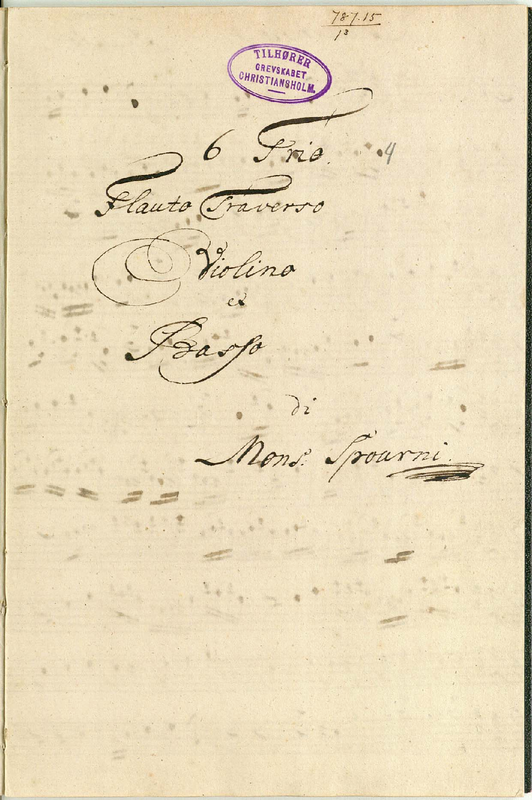 787.15
13
TILHØRER
GREVSKABET
CHRISTIANSHOLM.
6 Trio. 4
Flauto Traverso
Violino
et
Basso
di
Mons: Spourni.